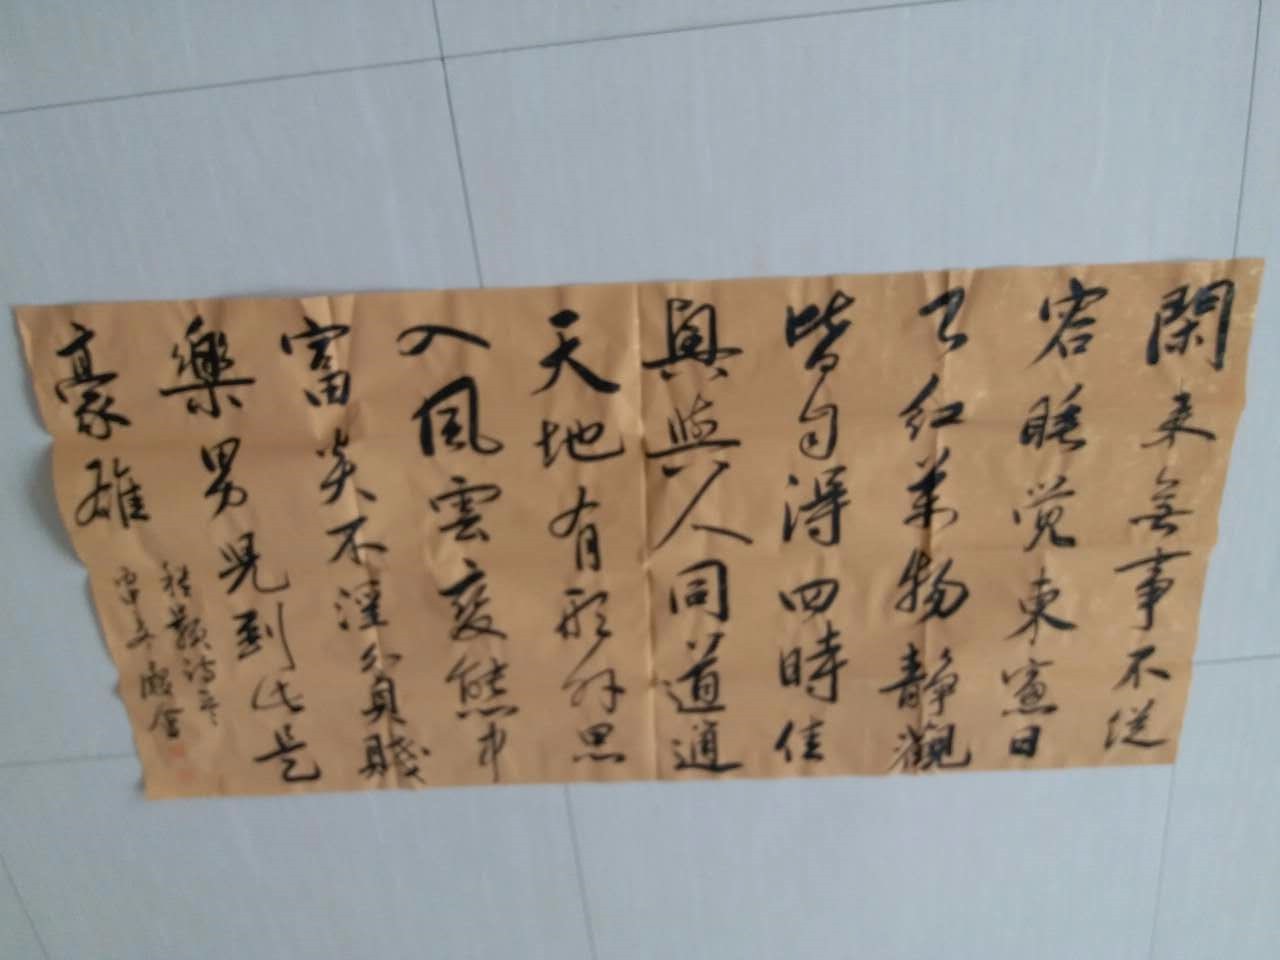 閑来無事不從
容睡覚東窓日
已红萬物静觀
皆自得四時佳
興與人同道通
天地有形外思
入風雲变態中
富贵不淫貧賤
樂男兒到此是
豪雄
程颢诗一首